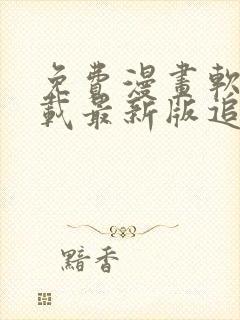 免費漫畫軟
載最新版追
黯香